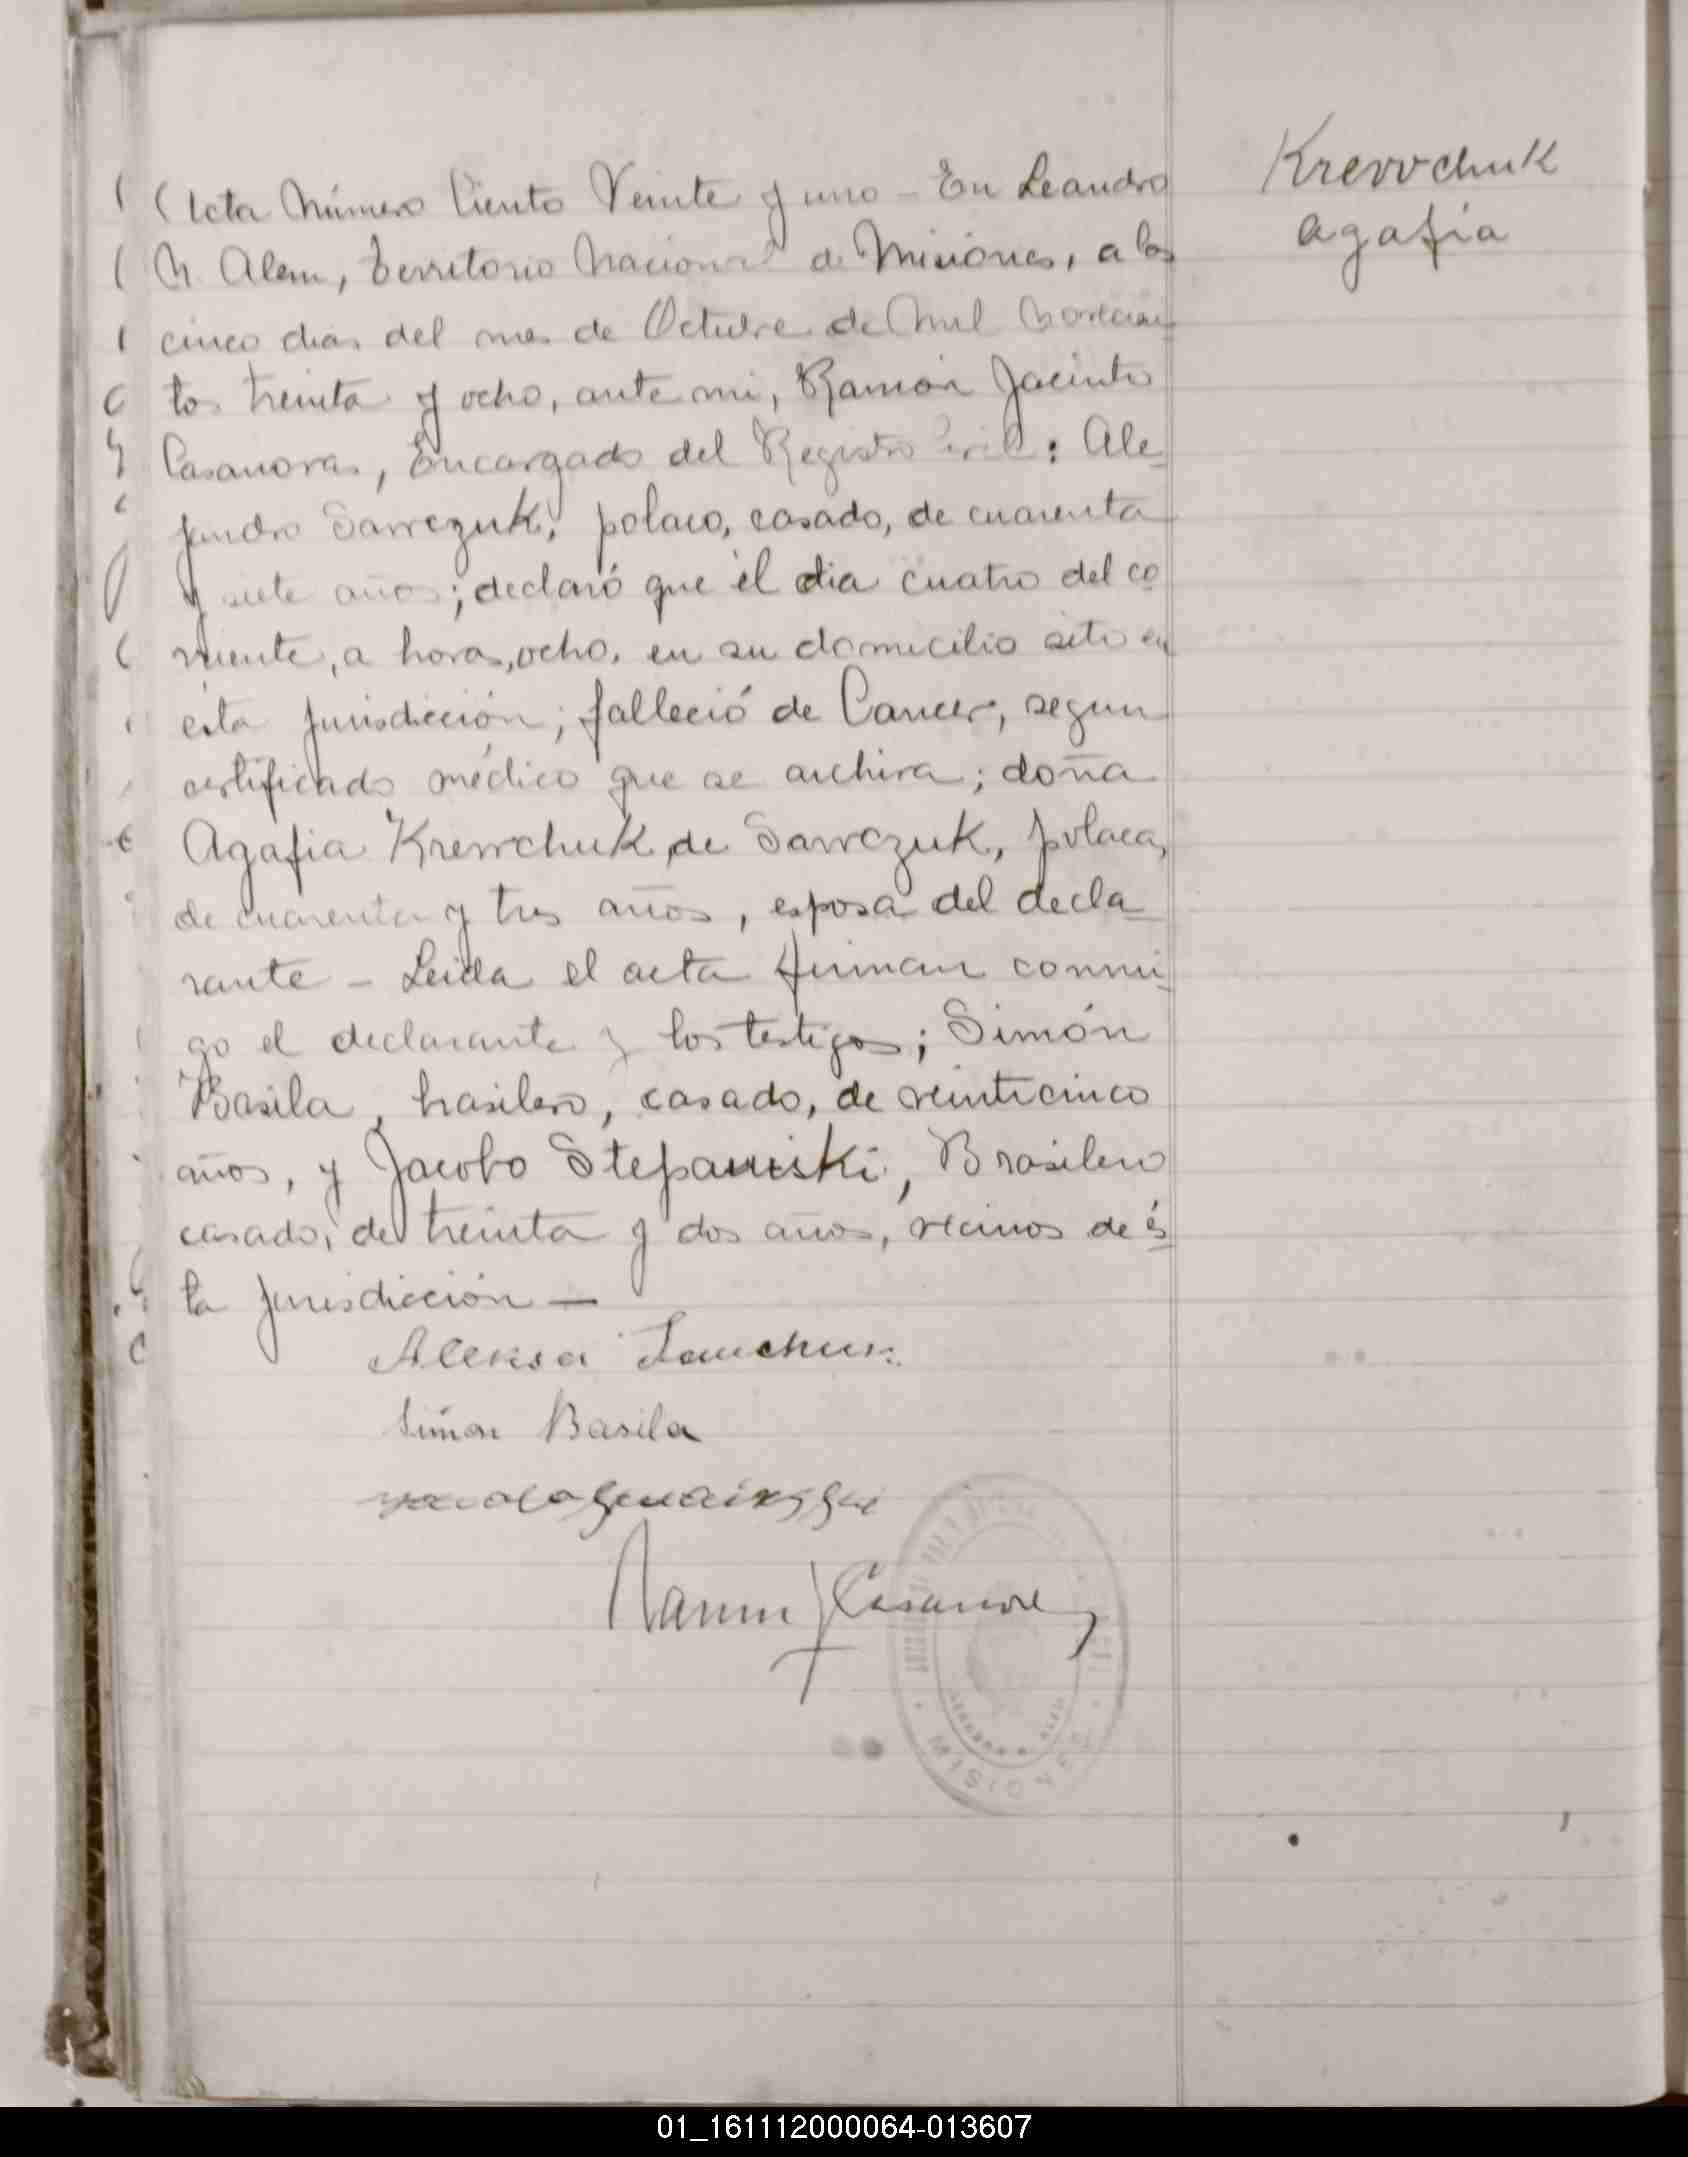 Acta Número Ciento Veinte y uno - En Leandro
N. Alem, territorio Nacional de Misiones, a los
cinco dias del mes de Octubre de Mil Novecien-
tos treinta y ocho, ante mi, Ramón Jacinto
Casanovas, Encargado del Registro Civil: Ale-
jandro Sawczuk, polaco, casado, de cuarenta
y siete años; declaró que el dia cuatro del co-
rriente, a horas, ocho, en su domicilio sito en
esta jurisdicción; falleció de Cancer, segun
certificado médico que se archiva; doña
Agafia Krewchuk de Sawczuk, polaca,
de cuarenta y tres años, esposa del decla-
rante - Leida el acta firman conmi-
go el declarante y los testigos; Simón
Basila, brasilero, casado, de veinticinco
años, y Jacobo Stepaniski, Brasilero
casado, de treinta y dos años, vecinos de és-
ta jurisdicción —
Krewchuk
Agafia
Simon Basila
Ramon J Casanova
MISIONES
01_161112000064-013607